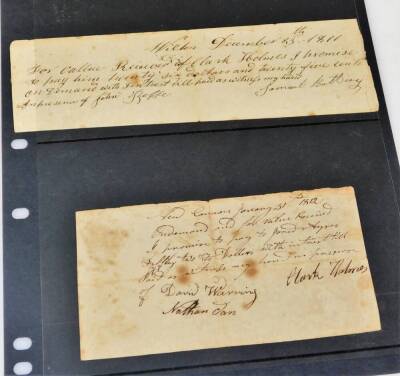 Wilton December 23th 1811
For Vallue Received of Clark Holmes I promise
to pay him twenty six dollars and twenty five cents
on Demand with Interest till paid as witness my hand
In presence of John Samuel
New Canaan January 21st 1812
Ondemand and for value Received
I promise to pay to Jones &
fifty two Dollars with interest till
paid as witness my hand in presence
of David Warning Clark Holmes
Nathan